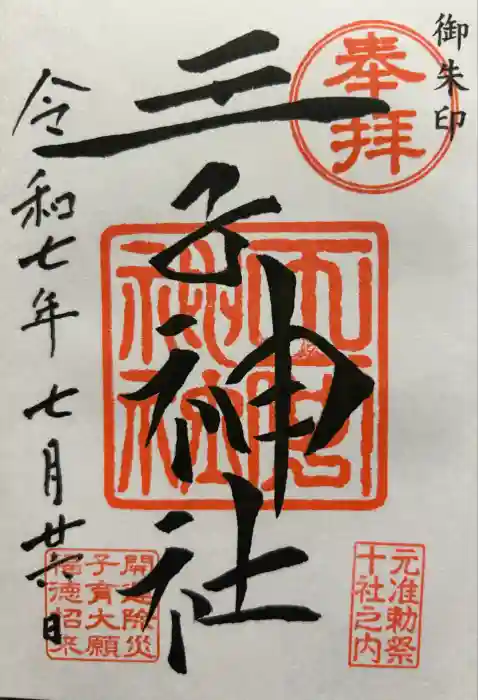 御朱印
奉拝
王子神社
元准勅祭
十社之内
開運除災
子育大願
福徳招来
令和七年七月廿六日